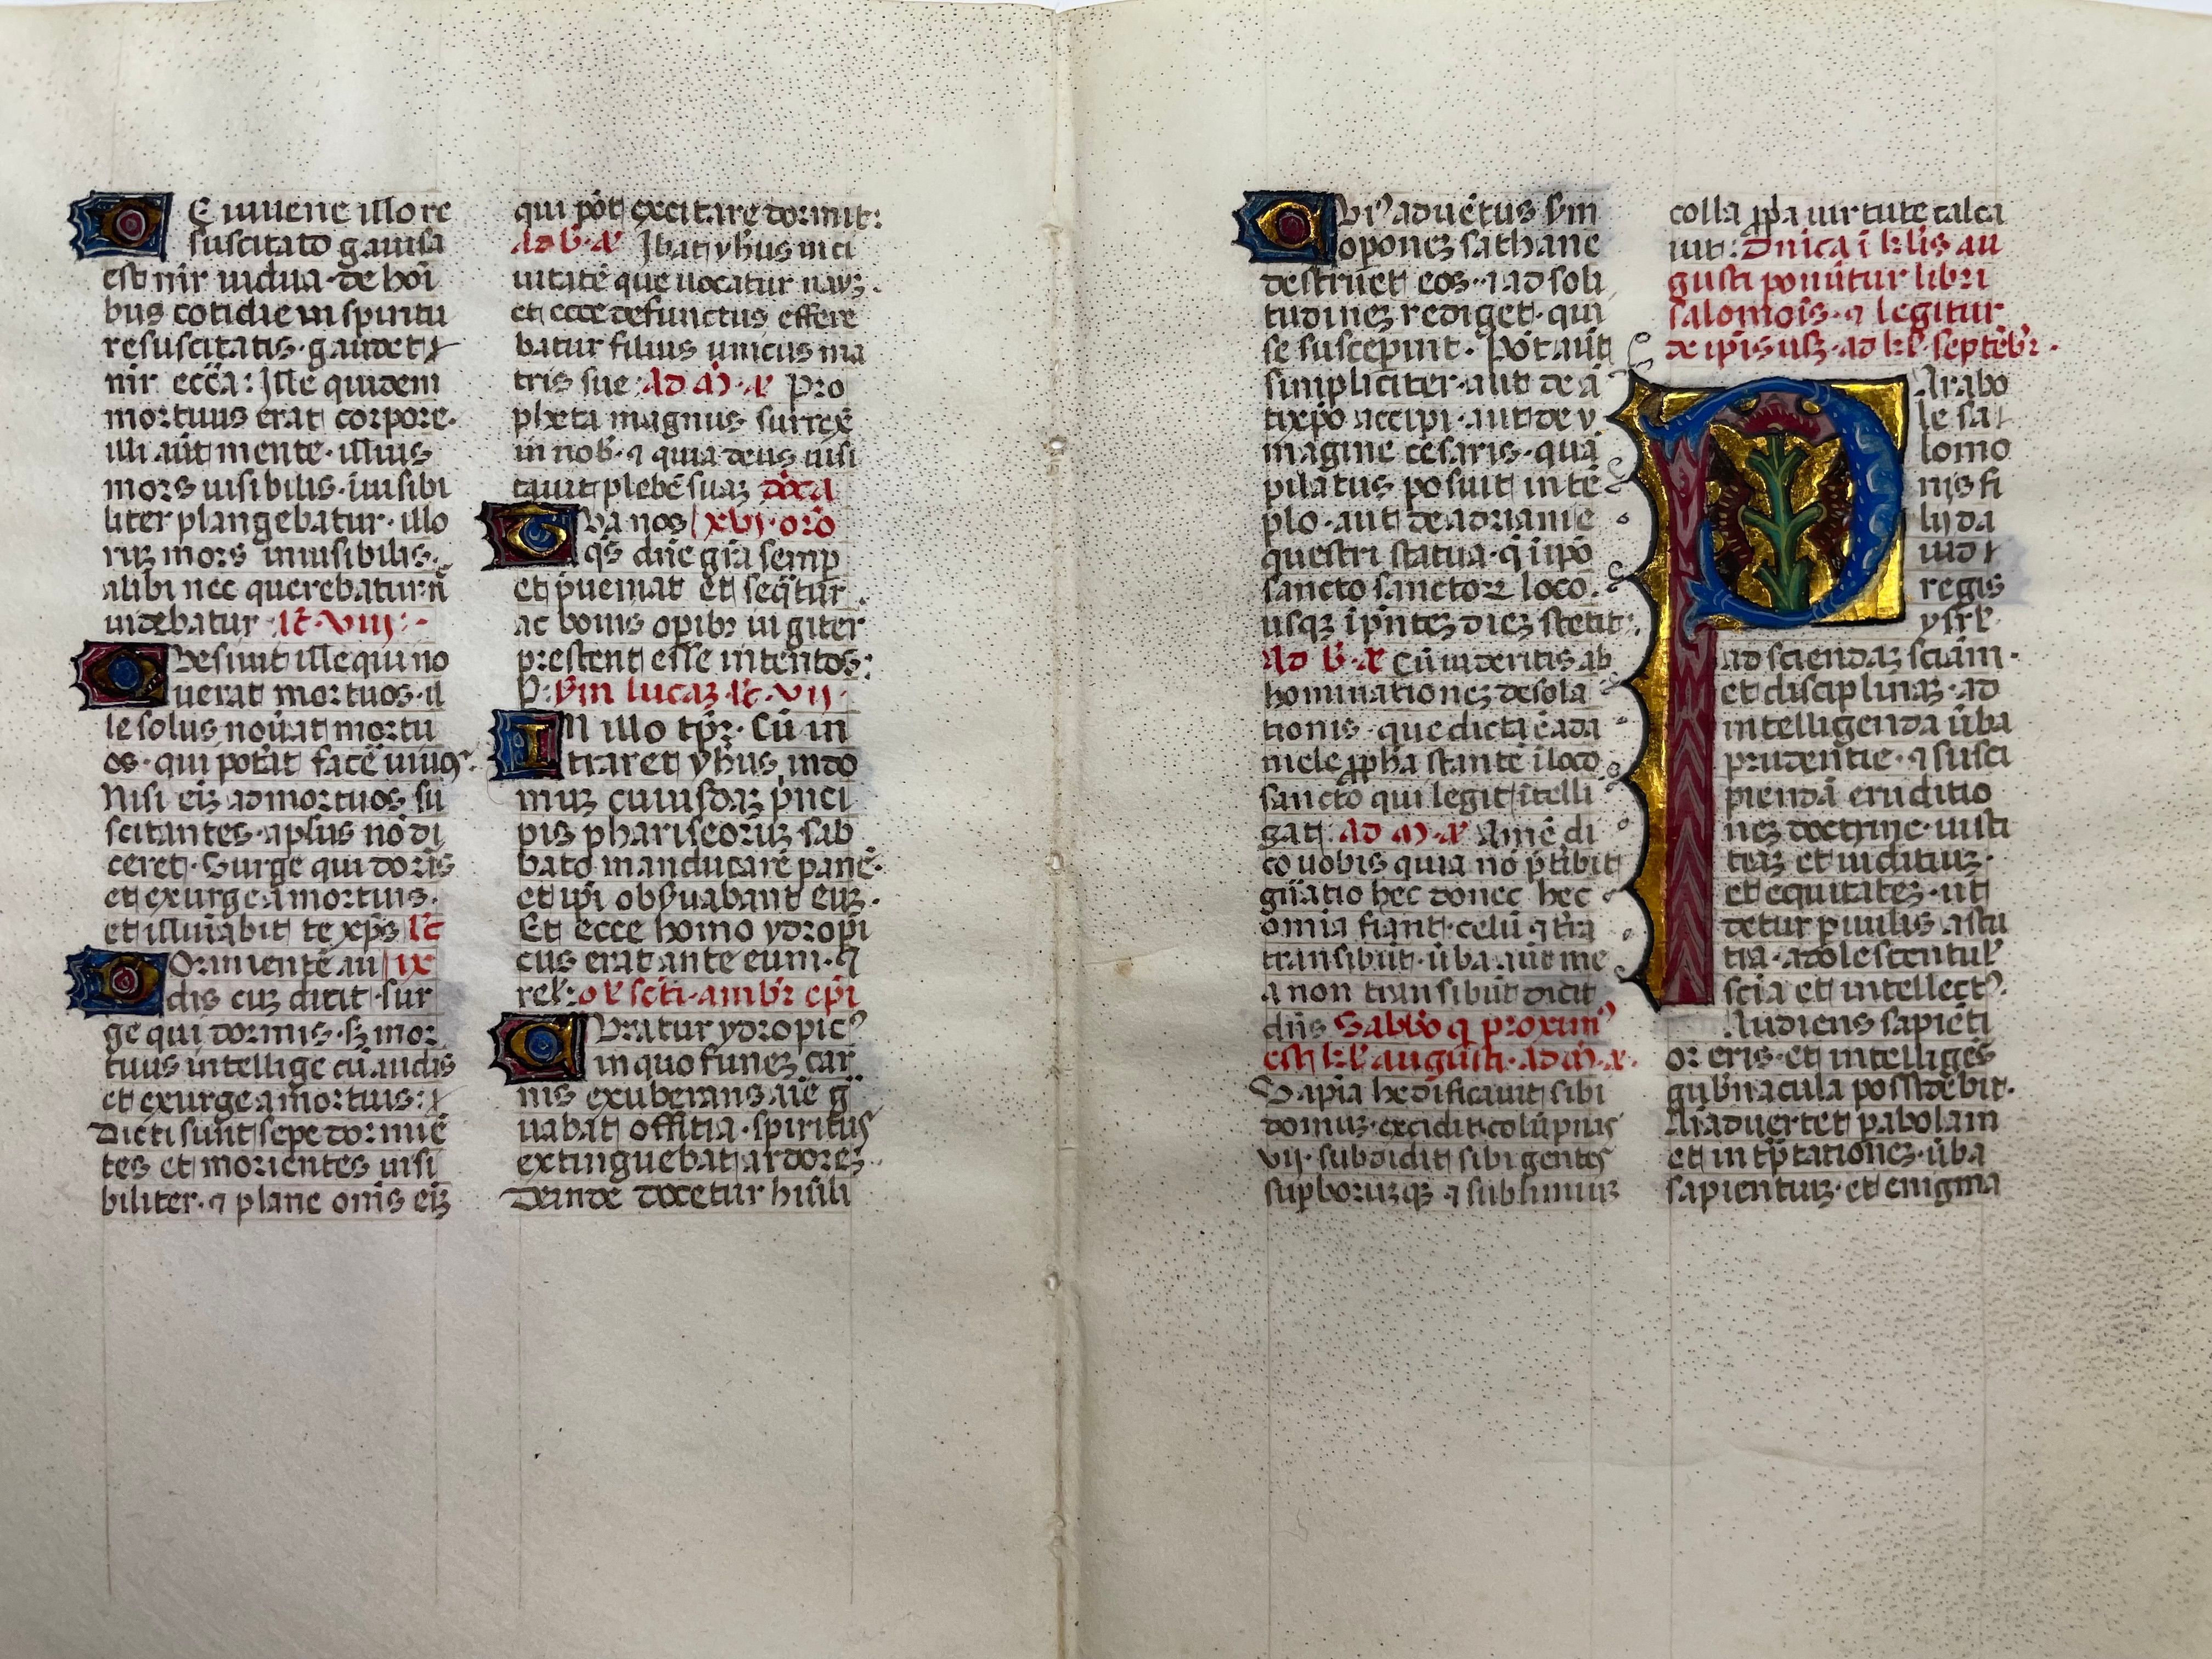 De iuuene illo re
suscitato gauisa
est mr̄ uidua· de hoī
bus cotidie in spiritu
resuscitatis· gaudet
mr̄ ecc̄a: Ille quidem
mortuus erat corpore·
illi aūt mente· illius
mors uisibilis· iuisibi
liter plangebatur· illo
rum mors inuisibilis·
alibi nec querebatur n̄
uidebatur· lc̄· viij·
Desiuit ille qui no
uerat mortuos· il
le solus nouat mortu
os· qui potāt facē uiuos·
Nisi eīz ad mortuos su
scitantes· aplus nō di
ceret· Surge qui dormis
et exurge a mortuis·
et illuiabit te xp̄s lc̄
Dormientē au ix
dis cuz dicit· sur
ge qui dormis· sz mor
tuus intellige cū audis
et exurge a mortuis:
Dicti sunt sepe dormiē
tes et morientes uisi
biliter· ⁊ plane om̄s eīz
qui pōt excitare dormit:
Ad b· a͞ Ibat yhus in ci
uitatē que uocatur nayz·
et ecce defunctus effere
batur filius unicus ma
tris sue· Ad m̄· a͞ Pro
pheta magnus surrex̄
in nob· ⁊ quia deus uisi
tauit plebē suaz d͞ca
Tua nos xvj· oro
qs̄ dn̄e gr̄a semp
et p̄ueniat et seq̄tur
ac bonis opib3 iugiter
prestent esse intentos:
P· sm̄ lucaz lc̄· vij·
In illo tp̄r· Cū in
traret yhus in do
muz cuiusdaz p̄nci
pis phariseoruz· sab
bato manducare panē·
et ip̄i obs̄uabant euz·
Et ecce homo ydropi
cus erat ante eum· ⁊
rel· om̄l sc̄ti· ambr̄ ep̄i
Curatur ydropic᾽
in quo funez car
nis exuberans aīe g͞
uabat offitia· spiritus
extinguebat ardorez·
Deinde docetur hūili
Qui᾽ aduētus sm̄
oponez sathane
destruet eos· ⁊ ad soli
tudinez rediget· qui
se suscepint· Pōt aūt
simpliciter· aut de ā
tixpo accipi· aut de y
magine cesaris· quā
pilatus posuit in tē
plo· aut de adriani e
questri statua· q̄ i ip̄o
sancto sanctoꝝ loco·
usqz ī p̄ntez diez stetit:
Ad b· a͞ Cū uideritis ab
hominationez desola
tionis· que dicta ē a da
niele ꝓpha stante ī loco
sancto qui legit ītelli
gat· Ad m̄· a͞ Amē di
co uobis quia nō p̄tibit
gn̄atio hec donec hec
omīa fiant· celū ⁊ tr̄a
transibūt· ūba aūt me
a non transibūt dicit
dn̄s Sabbo q̄ proxim᾽
est kl̄ augusti· ad m̄· a͞·
Sapīa hedificauit sibi
domuz· excidit colūpnas
vij· subdidit sibi gentes
supboruzqz ⁊ sublimiuz
colla ꝓpa uirtute calca
uit: Dn̄ica ī kl̄is au
gusti ponūtur libri
salomōis· ⁊ legitur
de ip̄is usqz ad kl̄ septēbr̄·
Parabo
le sa
lomo
nis fi
lij da
uid
regis
ysrl̄·
ad sciendaz sciām·
et disciplinaz· ad
intelligenda ūba
prudentie· ⁊ susci
piendā eruditio
nez doctrine· iusti
tiaz et iudituiz·
et equitatez· ut
detur puulis astu
tia· adolescentul᾽
scīa et intellect᾽·
Audiens sapiēti
or eris· et intelliges
gub̄nacula possidebit·
Aīaduertet pabolam
et int̄p̄tationez· ūba
sapientuz· et enigma